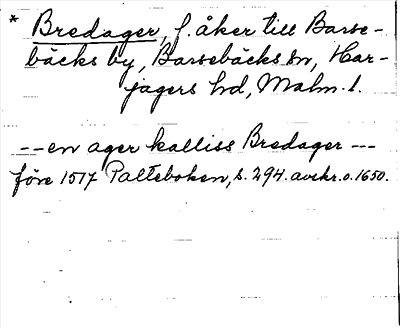 * Bredager, f. åker till Barse-
bäcks by, Barsebäcks sn, Har-
jagers hd, Malm. l.
--en ager kalliss Bredager ---
före 1517 Palteboken, s. 294. avskr. o. 1650.